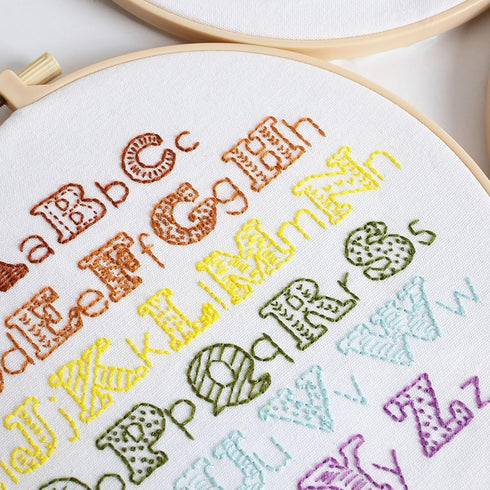 AaBbCc
dEeFfGgHh
JjKkLlMmNn
oPpQqRrSs
UuVvWw
YyZz